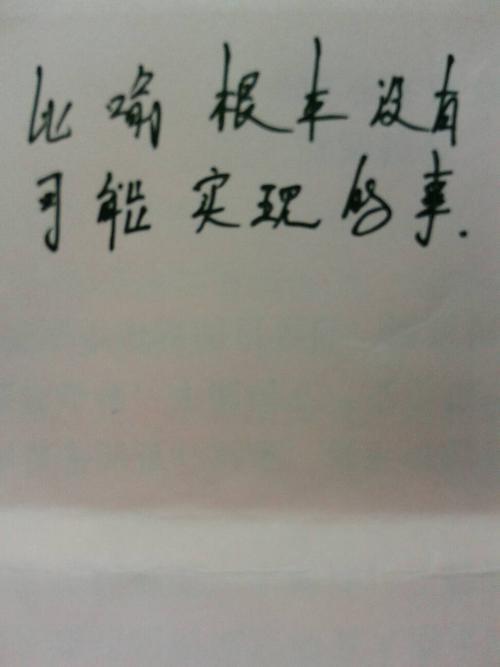 比喻根本没有
可能实现的事.